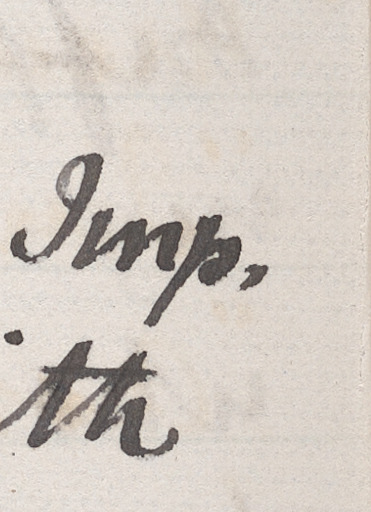 Imp.
ith